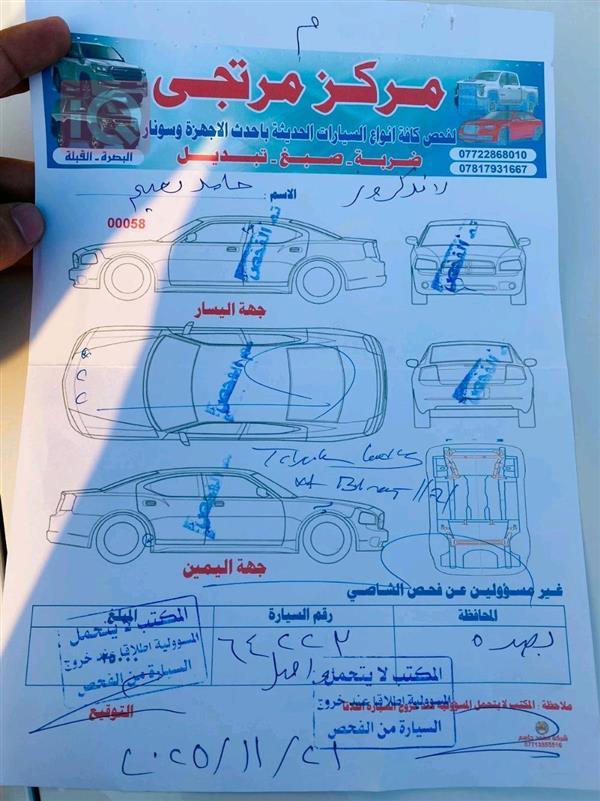 م
مركز مرتجى
لفحص كافة انواع السيارات الحديثة باحدث الاجهزة وسونار
ضربة - صبغ - تبديل
البصرة - القبلة
07722868010
07817931667
الاسم : حامد نعيم
لاندكروز
00058
تم الفحص
تم الفحص
جهة اليسار
تم الفحص
تم الفحص
تم الفحص
جهة اليمين
غير مسؤولين عن فحص الشاصي
المحافظة
رقم السيارة
المبلغ
بصره
٦٤٢٢٣
المكتب لا يتحمل
المسؤولية اطلاقا عند خروج
السيارة من الفحص
المكتب لا يتحمل
المسؤولية اطلاقا عند خروج
السيارة من الفحص
ملاحظة : المكتب لا يتحمل المسؤولية عند خروج السيارة
التوقيع
٢٠٢٥/١١/٢١